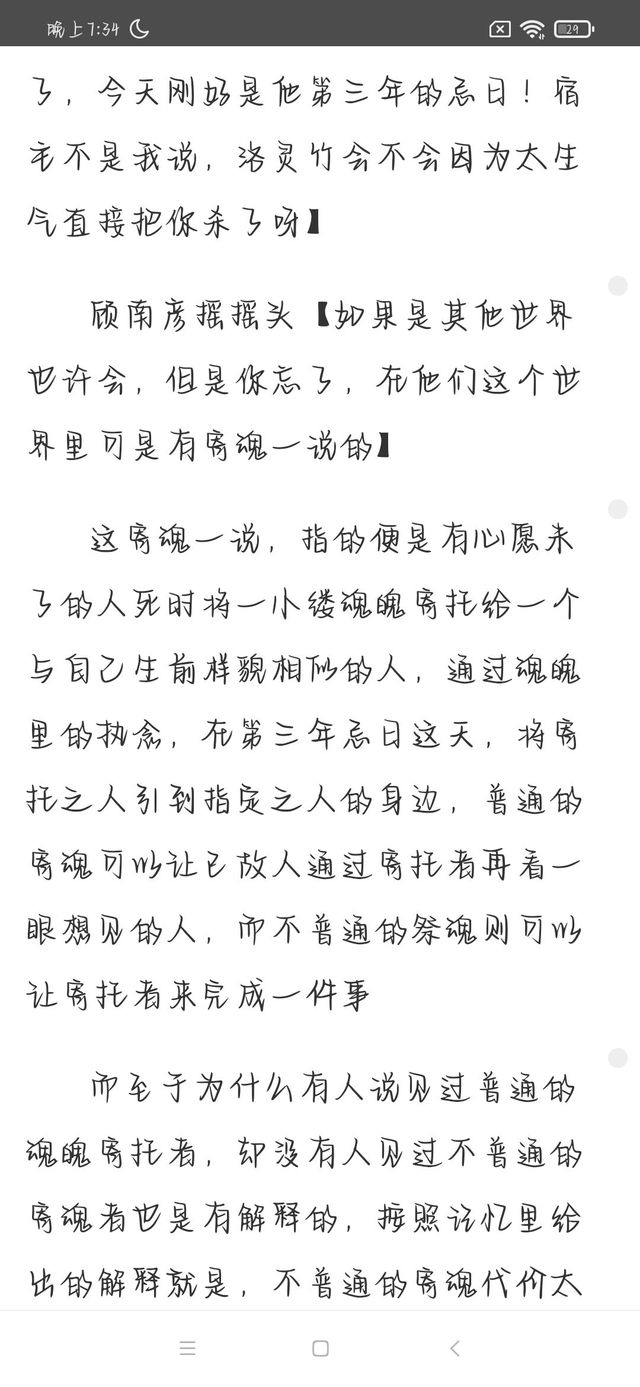 晚上7:34
29
了，今天刚好是他第三年的忌日！宿
主不是我说，洛灵竹会不会因为太生
气直接把你杀了呀】
顾南彦摇摇头【如果是其他世界
也许会，但是你忘了，在他们这个世
界里可是有寄魂一说的】
这寄魂一说，指的便是有心愿未
了的人死时将一小缕魂魄寄托给一个
与自己生前样貌相似的人，通过魂魄
里的执念，在第三年忌日这天，将寄
托之人引到指定之人的身边，普通的
寄魂可以让已故人通过寄托者再看一
眼想见的人，而不普通的祭魂则可以
让寄托者来完成一件事
而至于为什么有人说见过普通的
魂魄寄托者，却没有人见过不普通的
寄魂者也是有解释的，按照记忆里给
出的解释就是，不普通的寄魂代价太